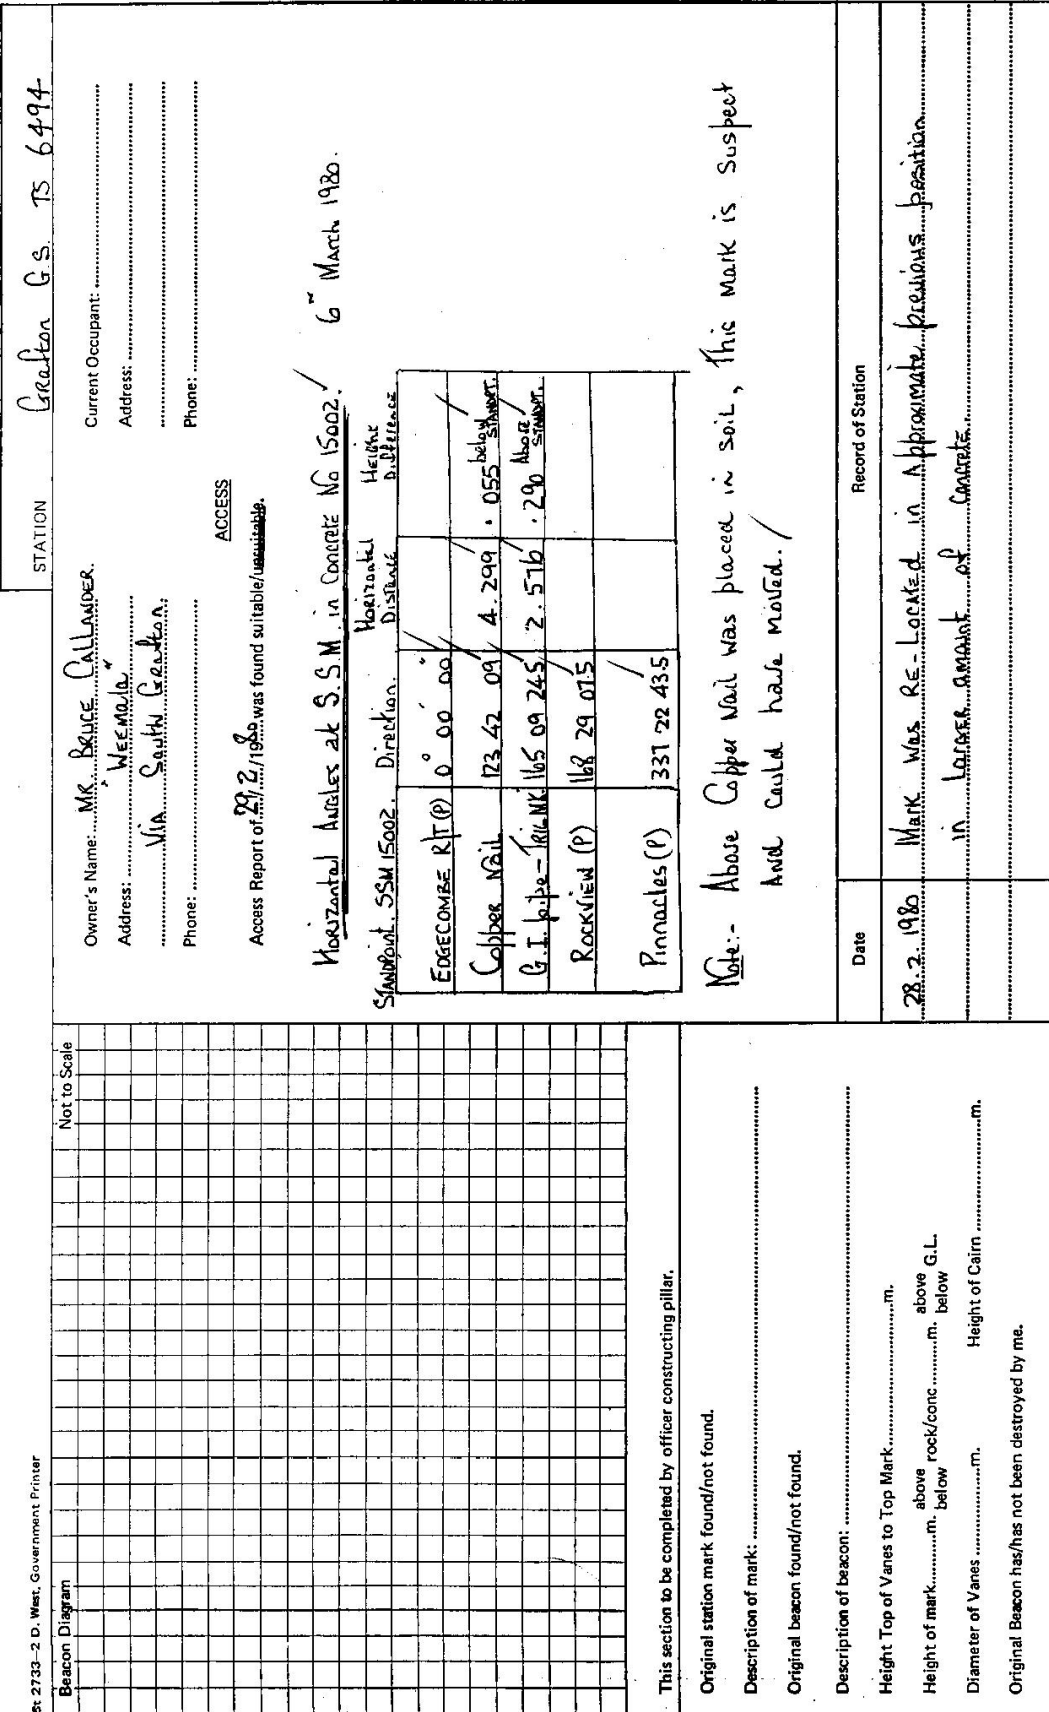 St 2733—2 D. West, Government Printer
Beacon Diagram Not to Scale
This section to be completed by officer constructing pillar.
Original station mark found/not found.
Description of mark:
Original beacon found/not found.
Description of beacon:
Height Top of Vanes to Top Mark m.
Height of mark m. above below rock/conc m. above below G.L.
Diameter of Vanes m. Height of Cairn m.
Original Beacon has/has not been destroyed by me.
STATION Grafton G.S. TS 6494
Owner's Name: MR BRUCE CALLANDER. Current Occupant:
Address: "WEEMALA" Address:
VIA South Grafton.
Phone: Phone:
ACCESS
Access Report of 29/2/1980 was found suitable/unsuitable.
Horizontal Angles at S.S.M in Concrete No 15002. 6th March 1980.
STANDPOINT. SSM 15002. Direction. Horizontal Distance Height Difference
EDGECOMBE R/T (P) 0° 00' 00"
Copper Nail 123 42 09 4.299 .055 below STANDPT.
G.I. pipe - TRIG MK. 165 09 24.5 2.576 .290 Above STANDPT.
ROCKVIEW (P) 168 29 07.5
Pinnacles (P) 337 22 43.5
Note:- Above Copper Nail was placed in soil, This mark is Suspect
And Could have moved.
Date Record of Station
28.2.1980 Mark Was RE-Located in Approximate previous position
in larger amount of Concrete.